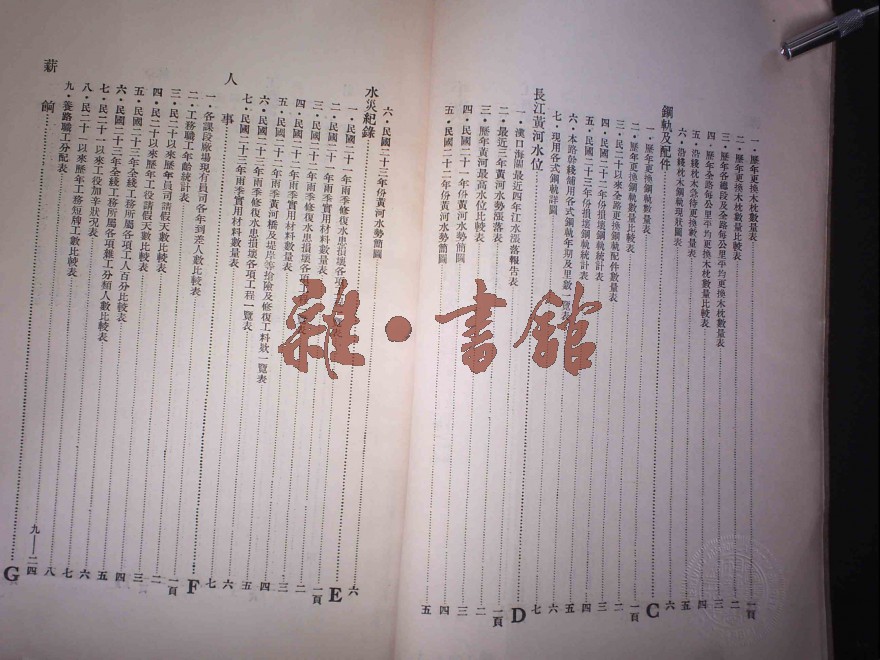 一・歷年更換木枕數量表 一頁
二・歷年更換木枕數量比較表 二
三・歷年各總段及全路每公里平均更換木枕數量表 三
四・歷年全路每公里平均更換木枕數量比較表 四
五・沿綫枕木急待更換數量表 五
六・沿綫枕木鋼軌現狀圖表 六
鋼軌及配件 C
一・歷年更換鋼軌數量表 一頁
二・歷年更換鋼軌數量比較表 二
三・民二十以來全路更換鋼軌配件數量表 三
四・民國二十二年份損壞鋼軌統計表 四
五・民國二十三年份損壞鋼軌統計表 五
六・本路幹綫鋪用各式鋼軌年期及里數一覽表 六
七・現用各式鋼軌詳圖 七
長江黃河水位 D
一・漢口海關最近四年江水漲落報告表 一頁
二・最近三年黃河水勢漲落表 二
三・歷年黃河最高水位比較表 三
四・民國二十一年份黃河水勢簡圖 四
五・民國二十二年份黃河水勢簡圖 五
六・民國二十三年份黃河水勢簡圖 六
水災紀錄 E
一・民國二十一年雨季修復水患損壞各項工程一覽表 一頁
二・民國二十一年雨季實用材料數量表 二
三・民國二十二年雨季修復水患損壞各項工程 三
四・民國二十二年雨季實用材料數量表 四
五・民國二十三年雨季修復水患損壞各項工程一覽表 五
六・民國二十三年雨季黃河橋及堤岸等搶險及修復工料欵一覽表 六
七・民國二十三年雨季實用材料數量表 七
人事 F
一・各課段廠場現有員司各年到差人數比較表 一頁
二・工務職工年齡統計表 二
三・民二十以來歷年員司請假天數比較表 三
四・民二十以來歷年工役請假天數比較表 四
五・民國二十三年全綫工務所屬各項工人百分比較表 五
六・民國二十三年全綫工務所屬各項雜工分類人數比較表 六
七・民二十以來工役加辛狀况表 七
八・民二十一以來歷年工務短牌工數比較表 八
九・養路職工分配表 九—二四
薪餉 G
雜・書館